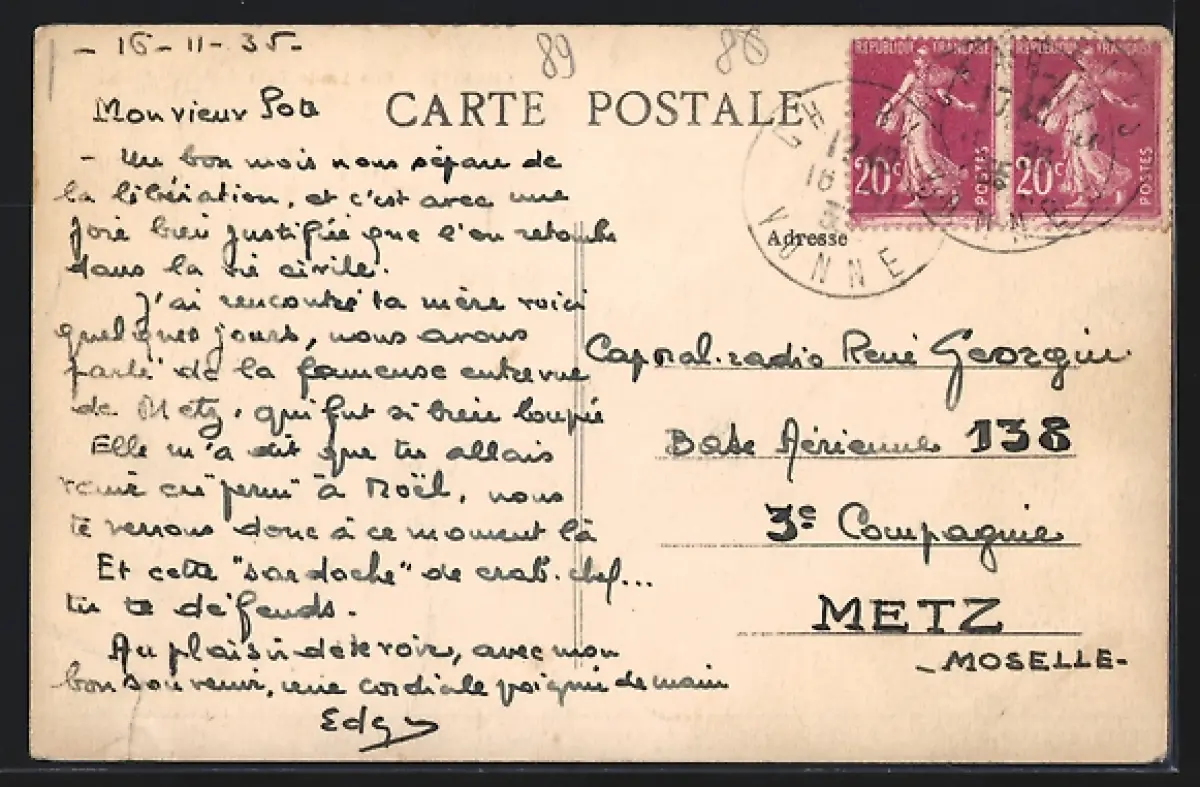 - 16-11-35-
89
86
Mon vieux Pote
CARTE POSTALE
- Un bon mois nous sépare de
la libération, et c'est avec une
joie bien justifiée que l'on retombe
dans la vie civile.
J'ai rencontré ta mère voici
quelques jours, nous avons
parlé de la fameuse entrevue
de Metz, qui fut si bien loupée
Elle m'a dit que tu allais
venir en "perm" à Noël, nous
te verrons donc à ce moment là
Et cette "sardoche" de crab-chef...
tu te défends.
Au plaisir de te voir, avec mon
bon souvenir, une cordiale poignée de main
Edgy
REPUBLIQUE FRANÇAISE
20c
POSTES
REPUBLIQUE FRANÇAISE
20c
POSTES
YONNE
Adresse
Caporal-radio René Georgin
Base Aérienne 138
3e Compagnie
METZ
-MOSELLE-